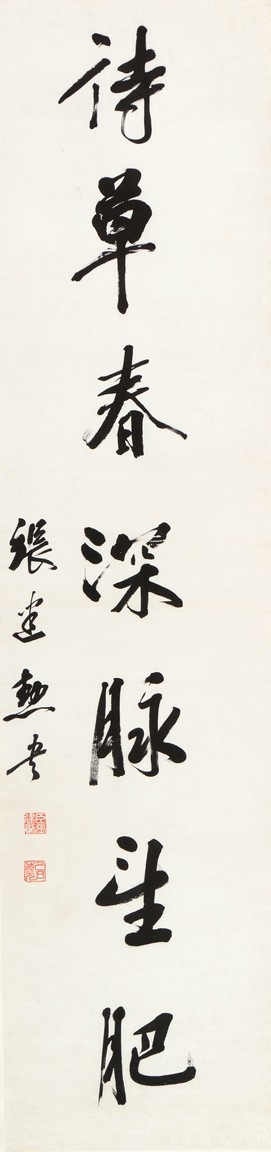 待草春深脉望肥
張建勲書